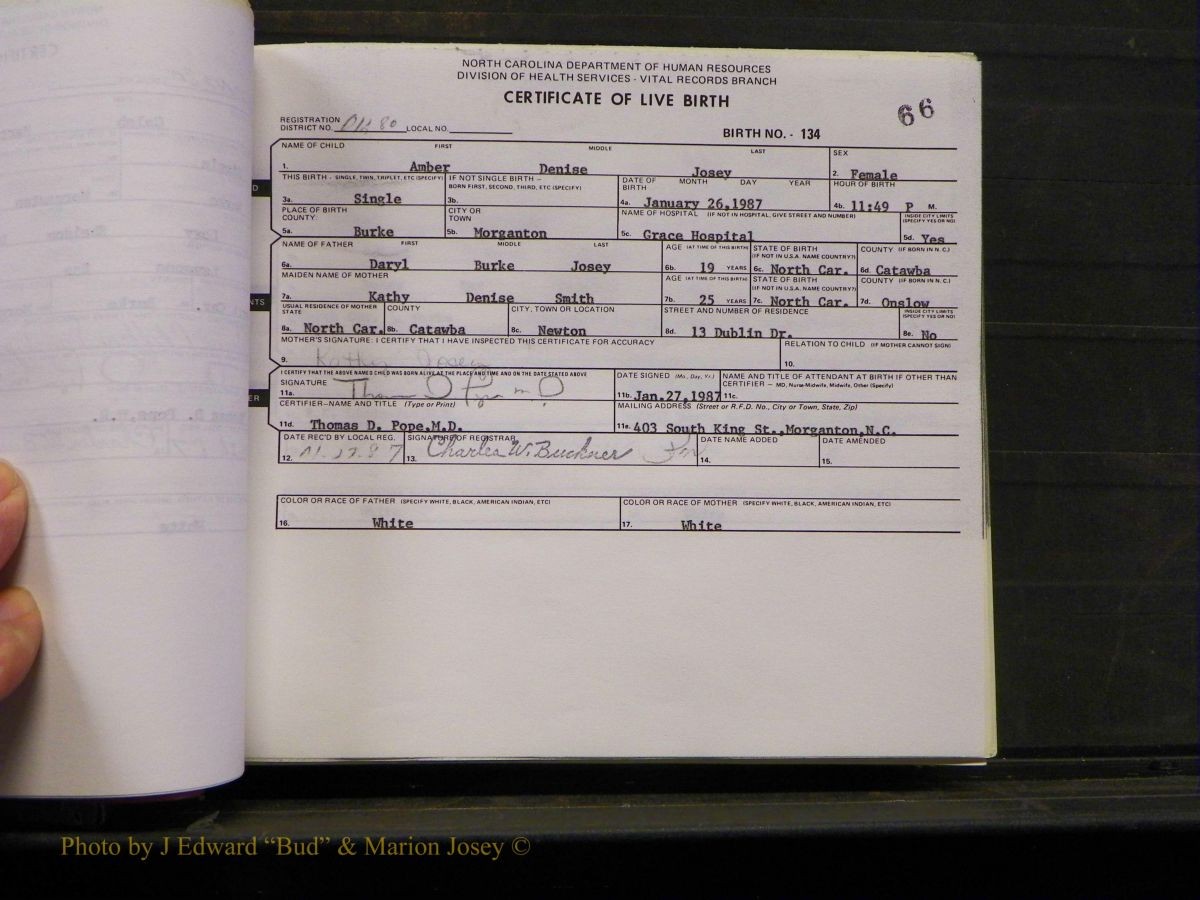 NORTH CAROLINA DEPARTMENT OF HUMAN RESOURCES
DIVISION OF HEALTH SERVICES - VITAL RECORDS BRANCH
CERTIFICATE OF LIVE BIRTH
66
REGISTRATION DISTRICT NO. LOCAL NO.
BIRTH NO. - 134
NAME OF CHILD FIRST MIDDLE LAST SEX
1. Amber Denise Josey 2. Female
THIS BIRTH - SINGLE, TWIN, TRIPLET, ETC (SPECIFY) IF NOT SINGLE BIRTH - BORN FIRST, SECOND, THIRD, ETC (SPECIFY) DATE OF BIRTH MONTH DAY YEAR HOUR OF BIRTH
3a. Single 3b. 4a. January 26,1987 4b. 11:49 P M.
PLACE OF BIRTH COUNTY CITY OR TOWN NAME OF HOSPITAL (IF NOT IN HOSPITAL, GIVE STREET AND NUMBER) INSIDE CITY LIMITS (SPECIFY YES OR NO)
5a. Burke 5b. Morganton 5c. Grace Hospital 5d. Yes
NAME OF FATHER FIRST MIDDLE LAST AGE (AT TIME OF THIS BIRTH) STATE OF BIRTH (IF NOT IN U.S.A. NAME COUNTRY?) COUNTY (IF BORN IN N.C.)
6a. Daryl Burke Josey 6b. 19 YEARS 6c. North Car. 6d. Catawba
MAIDEN NAME OF MOTHER AGE (AT TIME OF THIS BIRTH) STATE OF BIRTH (IF NOT IN U.S.A. NAME COUNTRY?) COUNTY (IF BORN IN N.C.)
7a. Kathy Denise Smith 7b. 25 YEARS 7c. North Car. 7d. Onslow
USUAL RESIDENCE OF MOTHER STATE COUNTY CITY, TOWN OR LOCATION STREET AND NUMBER OF RESIDENCE INSIDE CITY LIMITS (SPECIFY YES OR NO)
8a. North Car. 8b. Catawba 8c. Newton 8d. 13 Dublin Dr. 8e. No
MOTHER'S SIGNATURE: I CERTIFY THAT I HAVE INSPECTED THIS CERTIFICATE FOR ACCURACY RELATION TO CHILD (IF MOTHER CANNOT SIGN)
9. Kathy Josey 10.
I CERTIFY THAT THE ABOVE NAMED CHILD WAS BORN ALIVE AT THE PLACE AND TIME AND ON THE DATE STATED ABOVE DATE SIGNED (Mo., Day, Yr.) NAME AND TITLE OF ATTENDANT AT BIRTH IF OTHER THAN CERTIFIER - MD, Nurse-Midwife, Midwife, Other (Specify)
SIGNATURE
11a. 11b. Jan.27,1987 11c.
CERTIFIER-NAME AND TITLE (Type or Print) MAILING ADDRESS (Street or R.F.D. No., City or Town, State, Zip)
11d. Thomas D. Pope,M.D. 11e. 403 South King St.,Morganton,N.C.
DATE REC'D BY LOCAL REG. SIGNATURE OF REGISTRAR DATE NAME ADDED DATE AMENDED
12. 13. Charles W. Buckner 14. 15.
COLOR OR RACE OF FATHER (SPECIFY WHITE, BLACK, AMERICAN INDIAN, ETC) COLOR OR RACE OF MOTHER (SPECIFY WHITE, BLACK, AMERICAN INDIAN, ETC)
16. White 17. White
Photo by J Edward “Bud” & Marion Josey ©